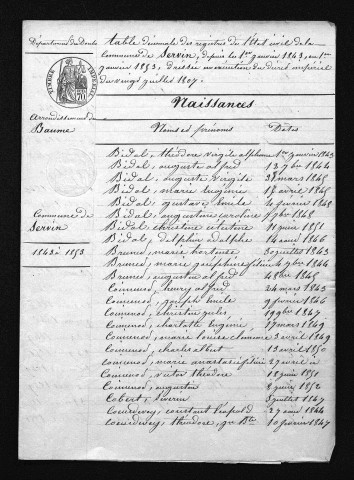 Département du Doubs
table décennale des registres de l'état civil de la
commune de Servin, depuis le 1er janvier 1843, au 1er
janvier 1853, dressée en exécution du décret impérial
du vingt juillet 1807.
TIMBRE IMPERIAL
Naissances
Arrondissement de
Baume
Noms et prénoms Dates
Bidal, théodore virgile alphonse 1er janvier 1843
Bidal, auguste alfred 13 7bre 1844
Bidal, auguste virgile 31 mars 1845
Bidal, marie eugénie 17 avril 1845
Bidal, gustave émile 4 février 1848
Bidal, augustine caroline 9bre 1848
Bidal, christine celestine 11 juin 1851
Bidal, delphin adolphe 14 août 1846
Commune de
Servin
1843 à 1853.
Brunes, marie hortense 30 juillet 1843
Brunes, marie joséphine 7bre 1844
Brunes, augustin alfred 4 8bre 1845
Comienod, henry alfred 24 mars 1843
Comienod, joseph émile 9 février 1846
Comienod, christin jules 19 9bre 1847
Comienod, charlotte eugénie 17 mars 1849
Comienod, marie louise clémence 3 avril 1849
Comienod, charles albert 13 avril 1850
Comienod, marie anastasie 27 avril
Comienod, victor théodore 18 juin 1851
Comienod, augustin 8 juin 1852
Cobert, séverin 3 juillet 1847
Courdevey, constant léopold 27 août 1844
Courdevey, théodore, 10 février 1847